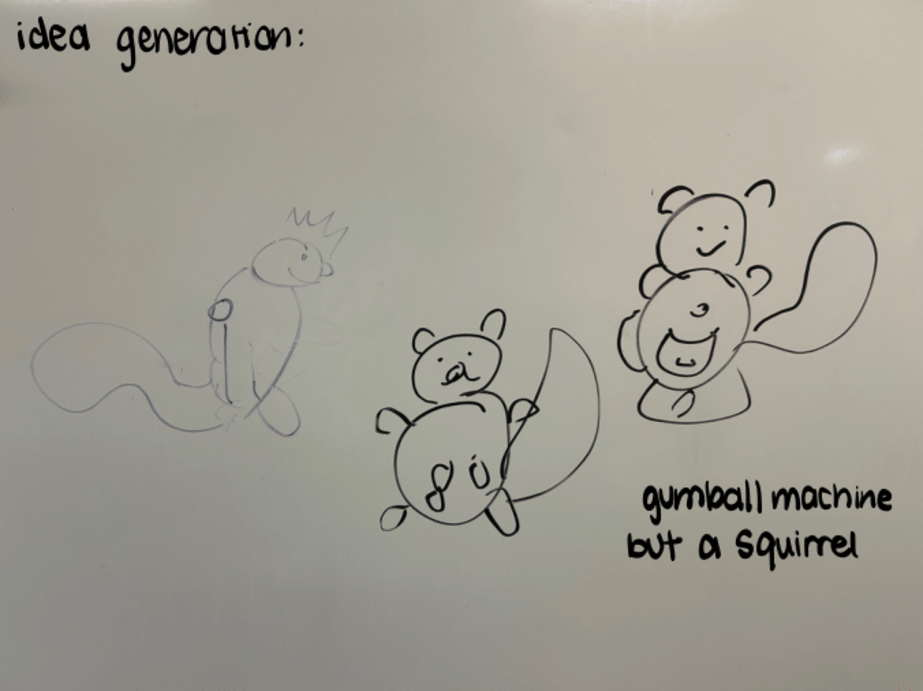 idea generation:
gumball machine
but a squirrel